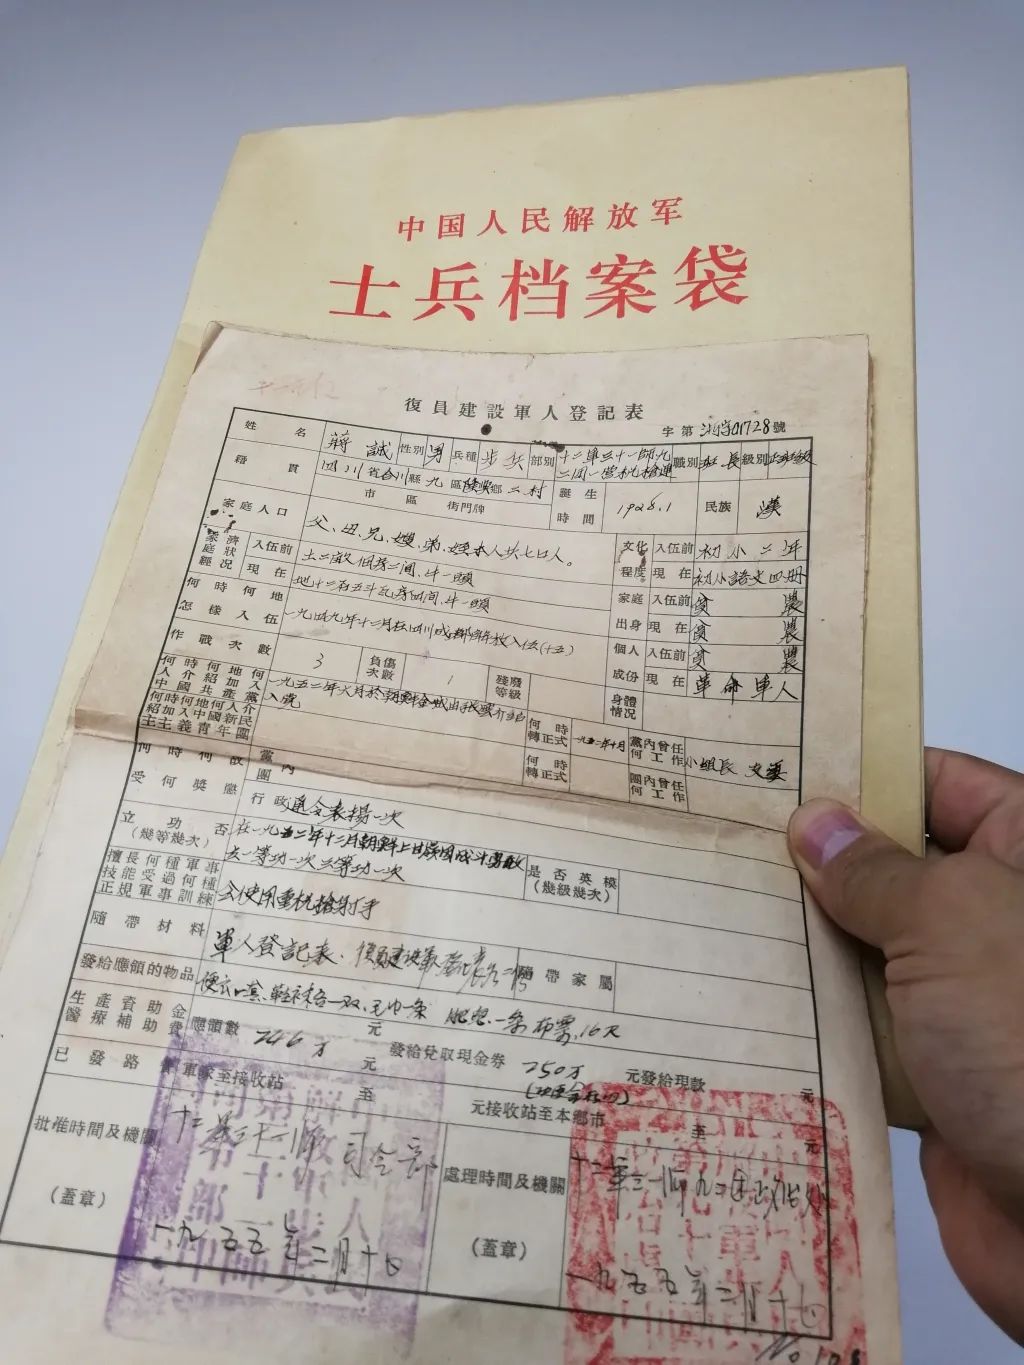 中国人民解放军
士兵档案袋
復員建設軍人登記表
字第 01728號
姓名 蔣誠 性別 男 兵種 步兵 部別 十二軍三十一師九二團一營机槍連 職別 班長 級別
籍貫 四川省合川縣九區 鄉二村
市 區 街門牌
誕生時間 1928.1 民族 漢
家庭人口 父、母、兄、嫂、弟、 本人共七口人。
文化程度 入伍前 初小二年
現在 初小語文四册
家庭經濟狀況 入伍前 土二畝 房二间、牛一頭
現在 地十二石五斗瓦房四间、牛一頭
家庭出身 入伍前 貧農
現在 貧農
何時何地怎樣入伍 一九四九年十二月在四川成都解放入伍
個人成份 入伍前 貧農
現在 革命軍人
作戰次數 3 負傷次數 1 殘廢等級
身體情況
何時何地何人介紹加入中國共產黨 一九五二年六月於朝鮮金城由 介紹入黨
何時轉正式 一九五二年十月 黨內曾任何工作 小組長 支委
何時何地何人介紹加入中國新民主主義青年團
何時轉正式 團內曾任何工作
何時何故受何獎懲 黨內
團
行政 通令表揚一次
立功否（幾等幾次） 在一九五二年十二月朝鮮上甘嶺 战斗
一等功一次三等功一次
是否英模（幾級幾次）
擅長何種軍事技能受過何種正規軍事訓練 会使用重机槍射手
隨帶材料 軍人登記表、復員建設軍 登記表各一份 隨帶家屬
發給應領的物品 便衣一套、 各一双、毛巾一条 肥皂一条 布票16尺
生產資助金醫療補助費 應領數 246万 元 發給兌取現金券 250万 元發給現款 元
已發路費 軍家至接收站 至 元接收站至本鄉市 至 元
批准時間及機關（蓋章） 十二軍三十一師司令部
一九五五年二月十七日
處理時間及機關（蓋章） 十二軍三一师九二团政治处
一九五五年二月十七日